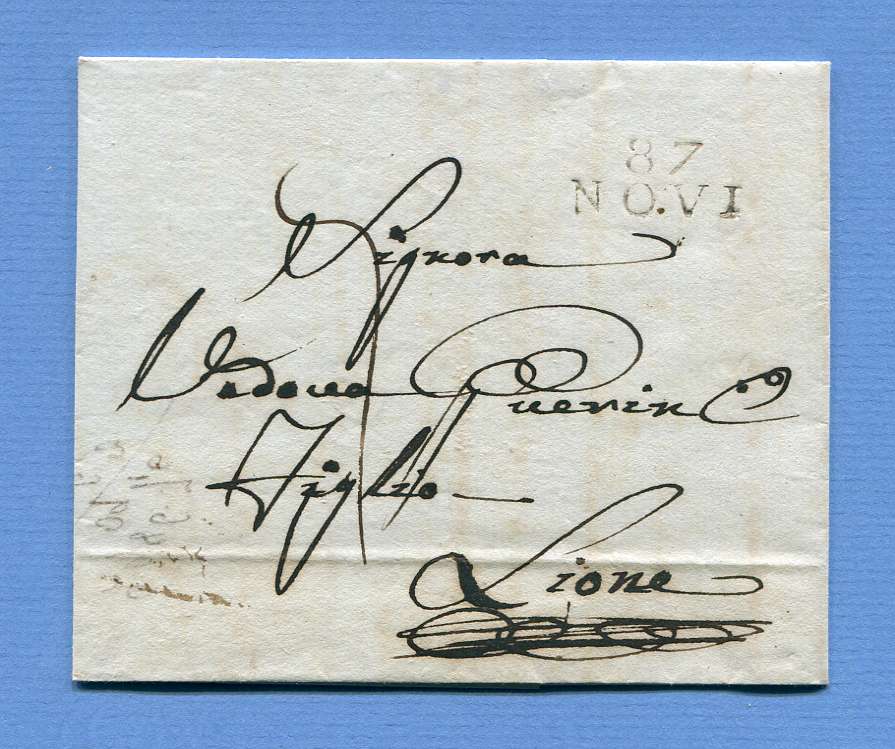 87
NO.VI
Signora
Vedova Guerin e
Figlio
Lione